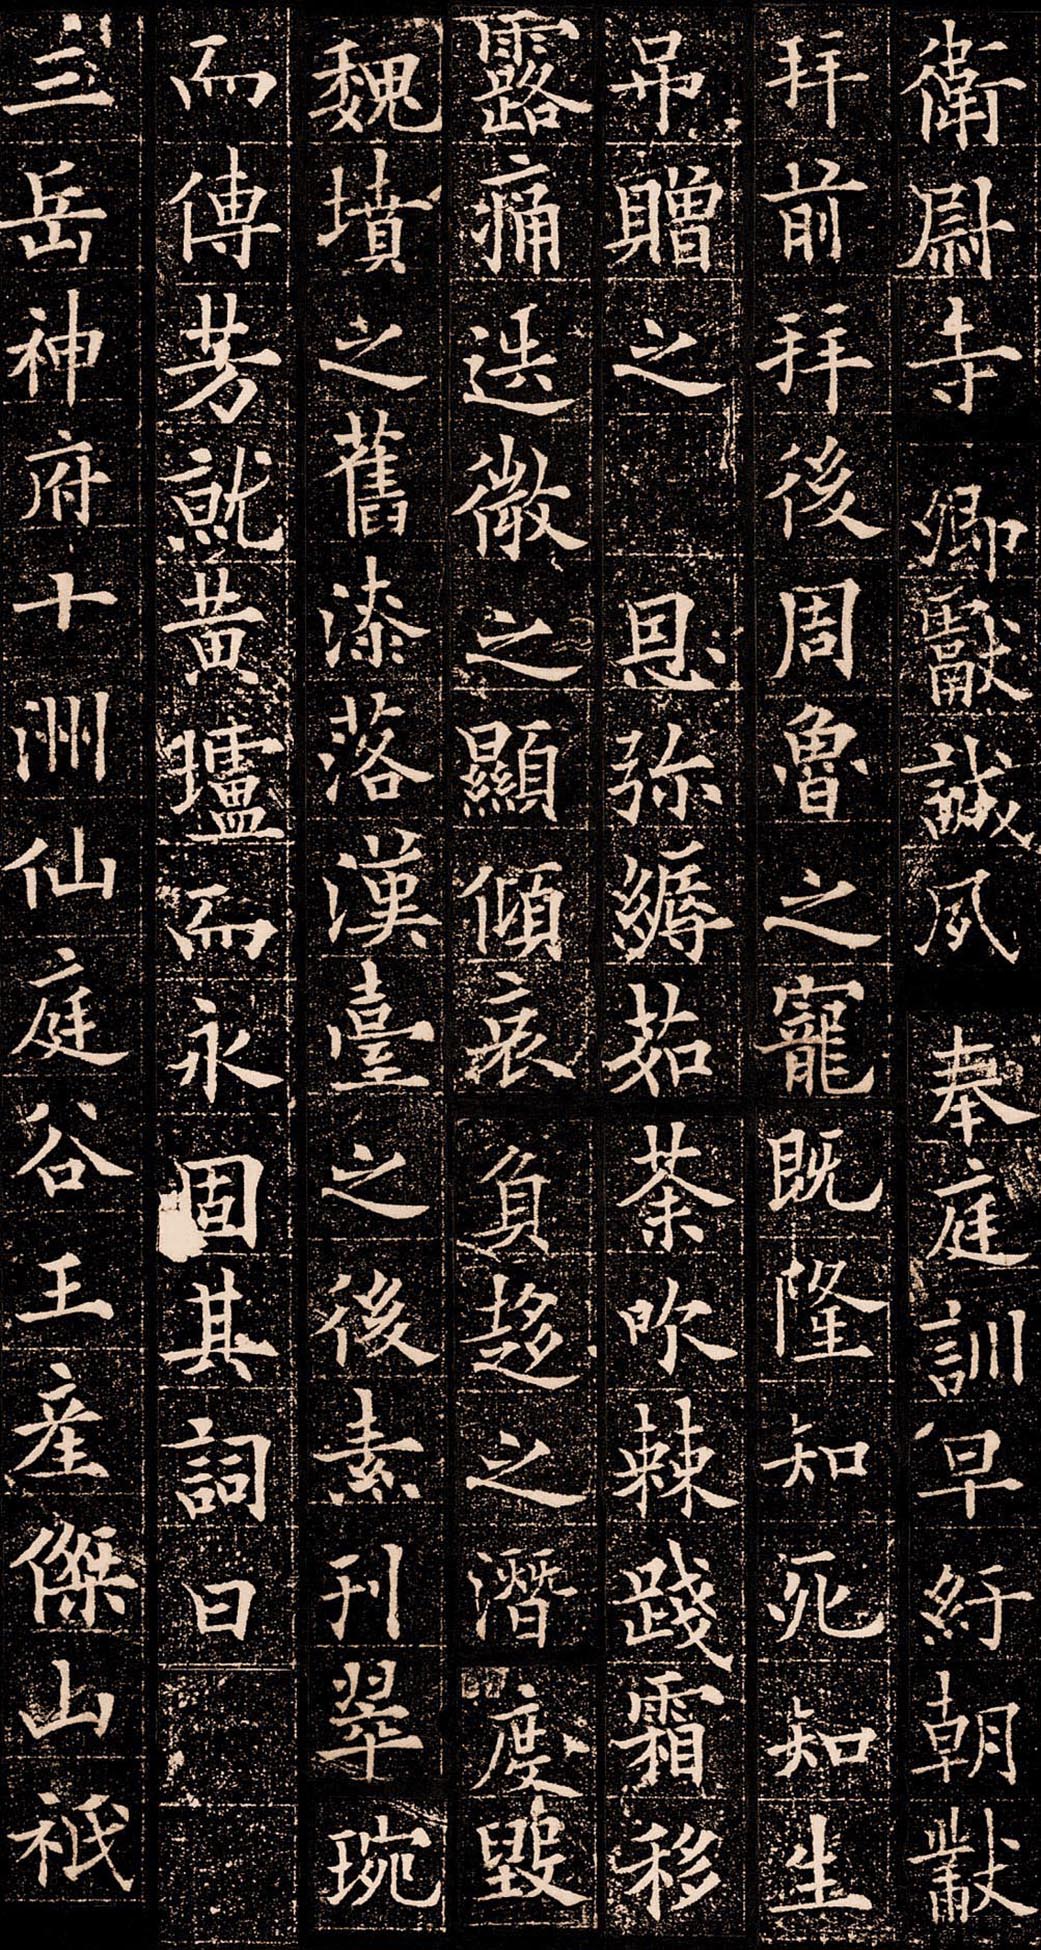 衛尉寺卿獻誠夙奉庭訓早紆朝黻
拜前拜後周魯之寵既隆知死知生
吊贈之恩弥縟茹荼吹棘踐霜移
露痛迭微之顯傾哀負趍之潛度毀
魏墳之舊漆落漢臺之後素刊翠琬
而傳芳就黃壚而永固其詞曰
三岳神府十洲仙庭谷王產傑山祇